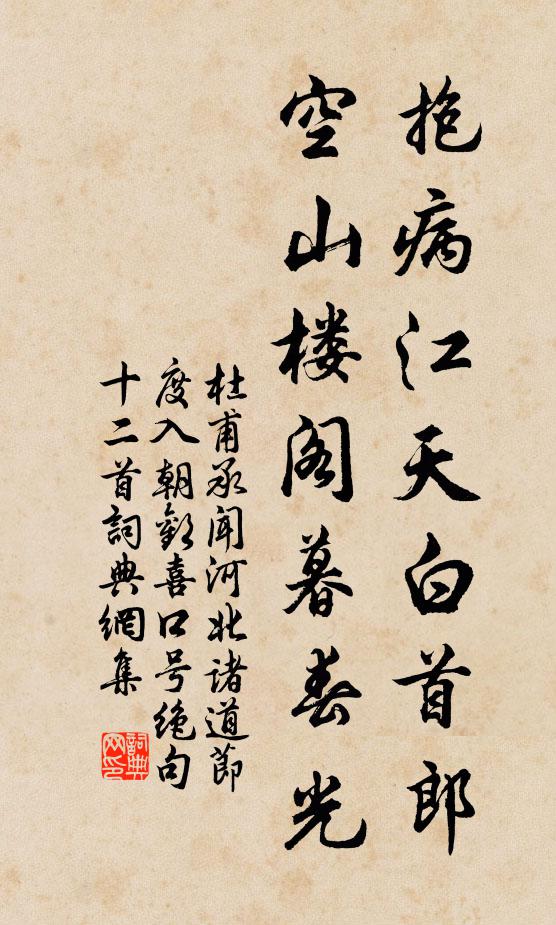 抱病江天白首郎
空山楼阁暮春光
杜甫承闻河北诸道节
度入朝欢喜口号绝句
十二首詞典網集
詞典
网印